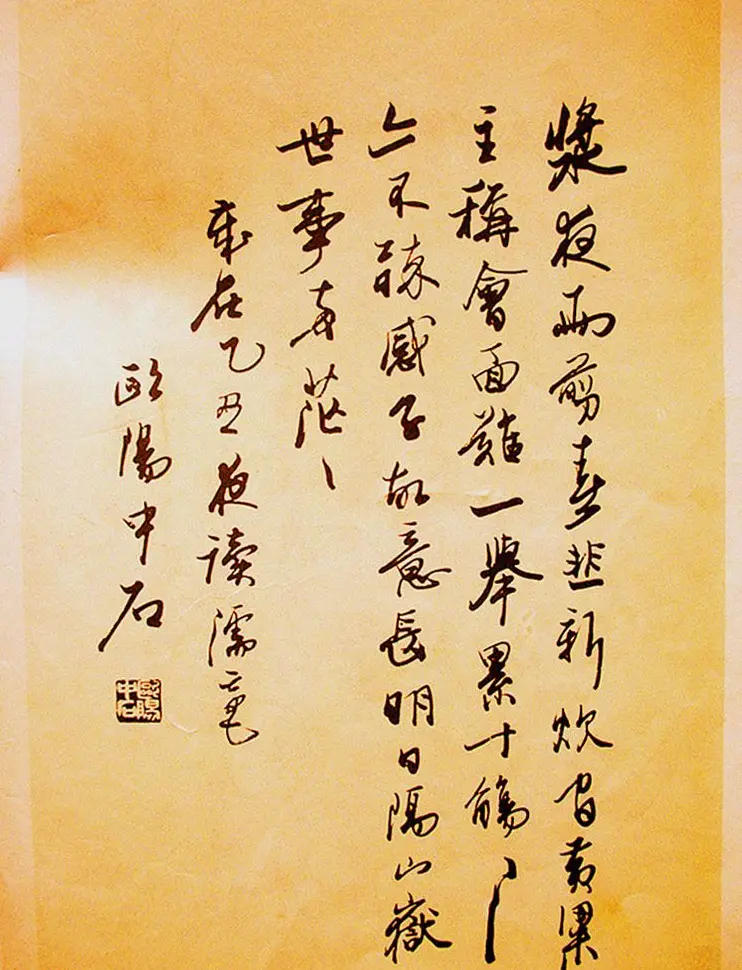 漿夜雨剪春韭新炊間黃粱
主稱會面難一舉累十觴〻〻
亦不醉感子故意長明日隔山嶽
世事兩茫〻
歲在乙丑夜读濡毫
歐陽中石
歐陽中石